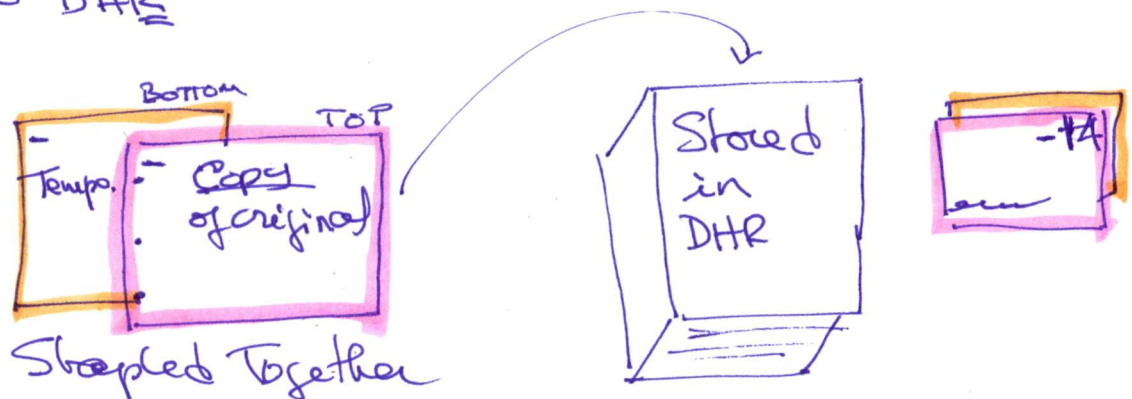 DHR
BOTTOM
TOP
Tempo.
Copy
of original
Stapled Together
Stored
in
DHR